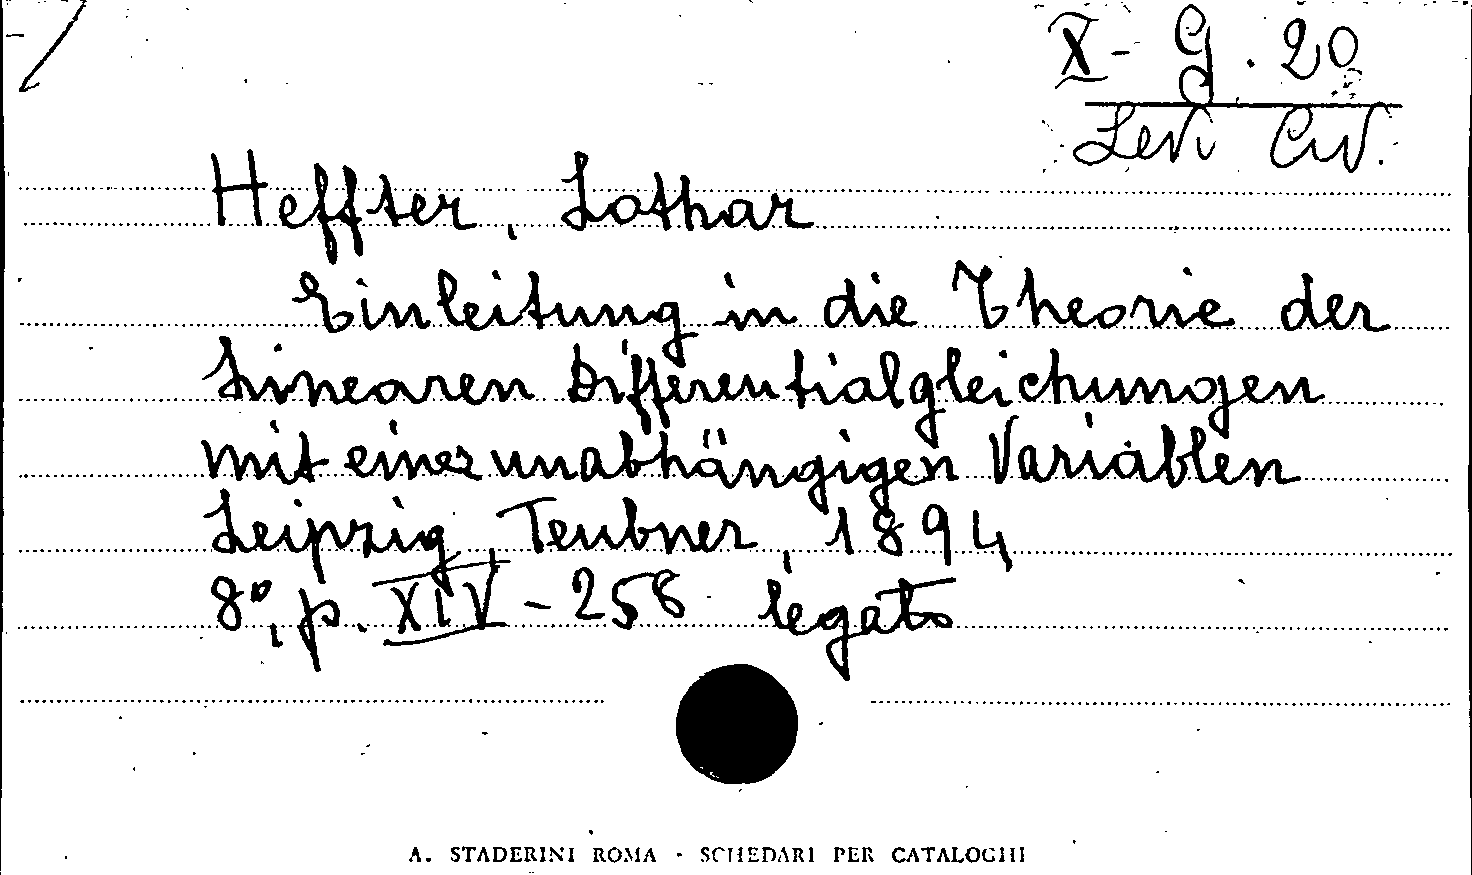 X - G. 20
Levi Civ.
Heffter, Lothar
Einleitung in die Theorie der
linearen Differentialgleichungen
mit einer unabhängigen Variablen
Leipzig, Teubner, 1894
8°, p. XIV - 258 legato
A. STADERINI ROMA - SCHEDARI PER CATALOGHI